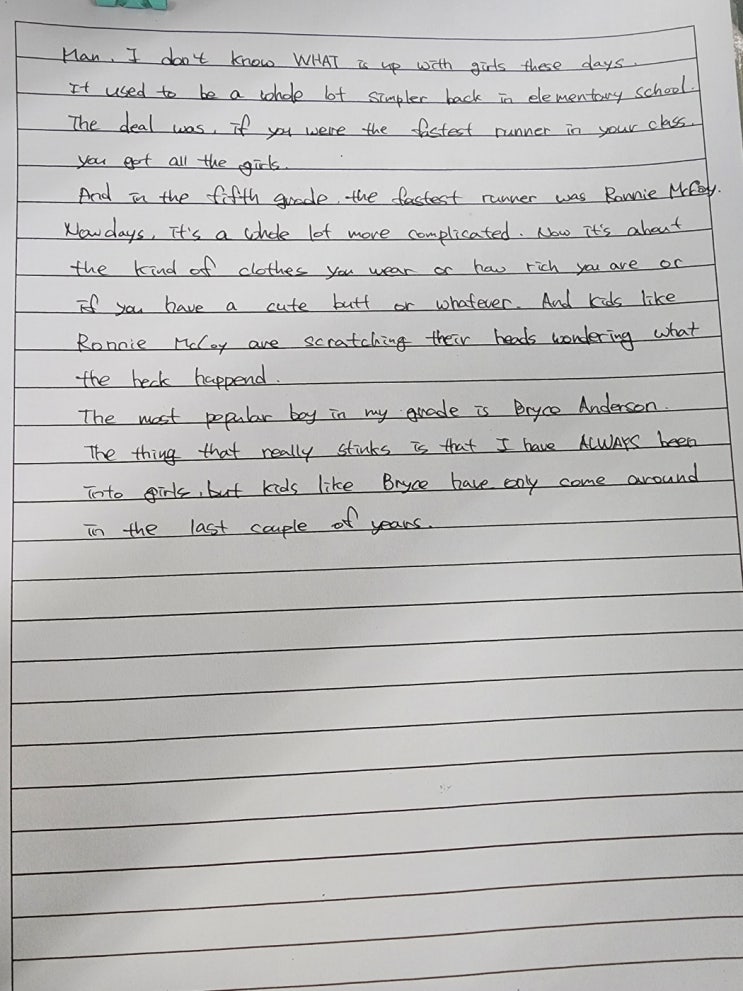 Man, I don't know WHAT is up with girls these days.
It used to be a whole lot simpler back in elementary school.
The deal was, if you were the fastest runner in your class,
you got all the girls.
And in the fifth grade, the fastest runner was Ronnie McCoy.
Nowdays, it's a whole lot more complicated. Now it's about
the kind of clothes you wear or how rich you are or
if you have a cute butt or whatever. And kids like
Ronnie McCoy are scratching their heads wondering what
the heck happend.
The most popular boy in my grade is Bryce Anderson.
The thing that really stinks is that I have ALWAYS been
into girls, but kids like Bryce have only come around
in the last couple of years.